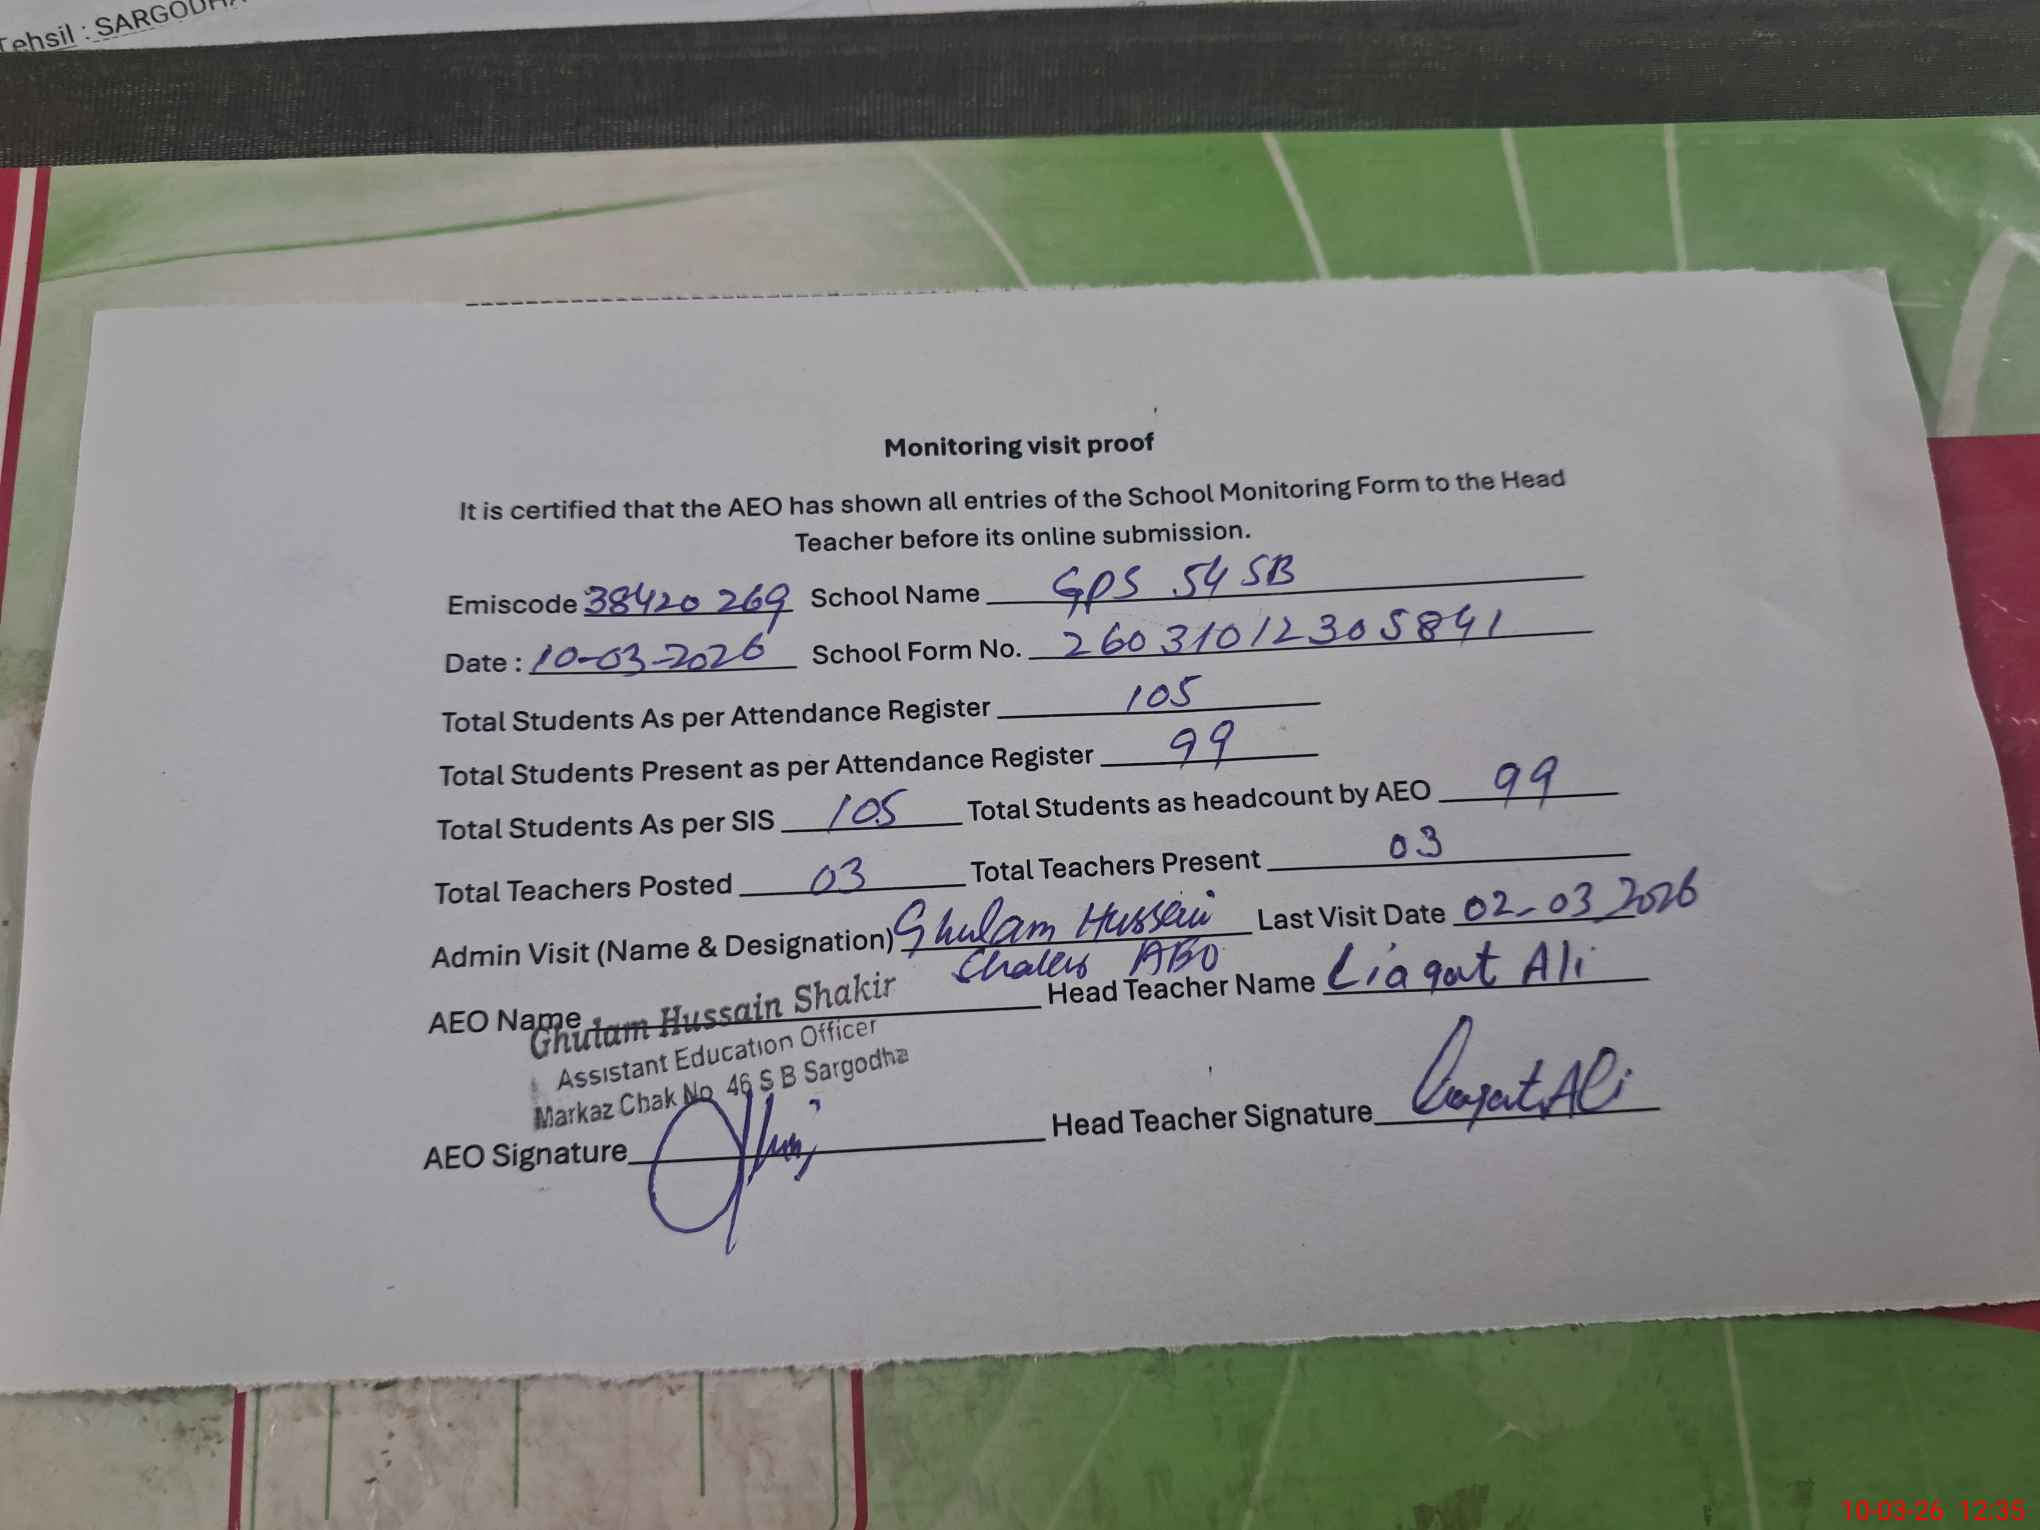 Tehsil : SARGODHA
Monitoring visit proof
It is certified that the AEO has shown all entries of the School Monitoring Form to the Head
Teacher before its online submission.
Emiscode 38420 269 School Name GPS 54 SB
Date : 10-03-2026 School Form No. 260310123305841
Total Students As per Attendance Register 105
Total Students Present as per Attendance Register 99
Total Students As per SIS 105 Total Students as headcount by AEO 99
Total Teachers Posted 03 Total Teachers Present 03
Admin Visit (Name & Designation) Ghulam Hussain Last Visit Date 02-03-2026
AEO
AEO Name Head Teacher Name Liaqat Ali
Ghulam Hussain Shakir
Assistant Education Officer
Markaz Chak No. 46 S B Sargodha
AEO Signature Head Teacher Signature Liaqat Ali
10-03-26 12:35